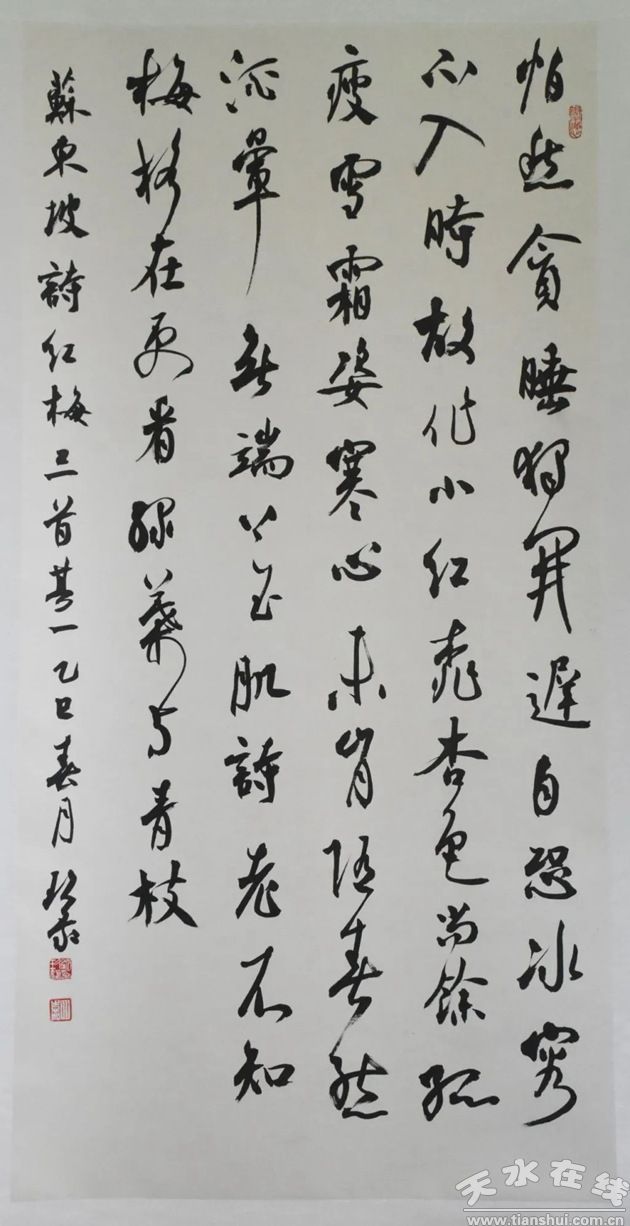 怕愁貪睡獨開遲自恐冰容
不入時故作小紅桃杏色尚餘孤
瘦雪霜姿寒心未肯隨春態
酒暈無端上玉肌詩老不知
梅格在更看綠葉与青枝
蘇東坡詩紅梅三首其一乙巳春月
天水在线
www.tianshui.com.cn